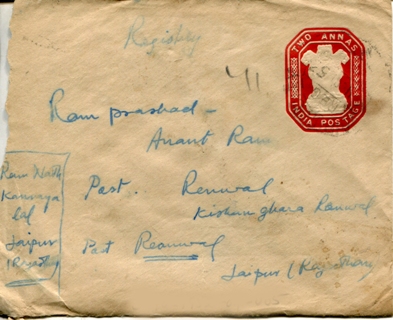 Registry
TWO ANNAS
INDIA POSTAGE
Ram prashad -
Anant Ram
Past. Renwal
Kishunghara Renwal
Past Reanwal
Jaipur (Rajasthan)
Ram Nath
Kanvaya
Lal
Jaipur